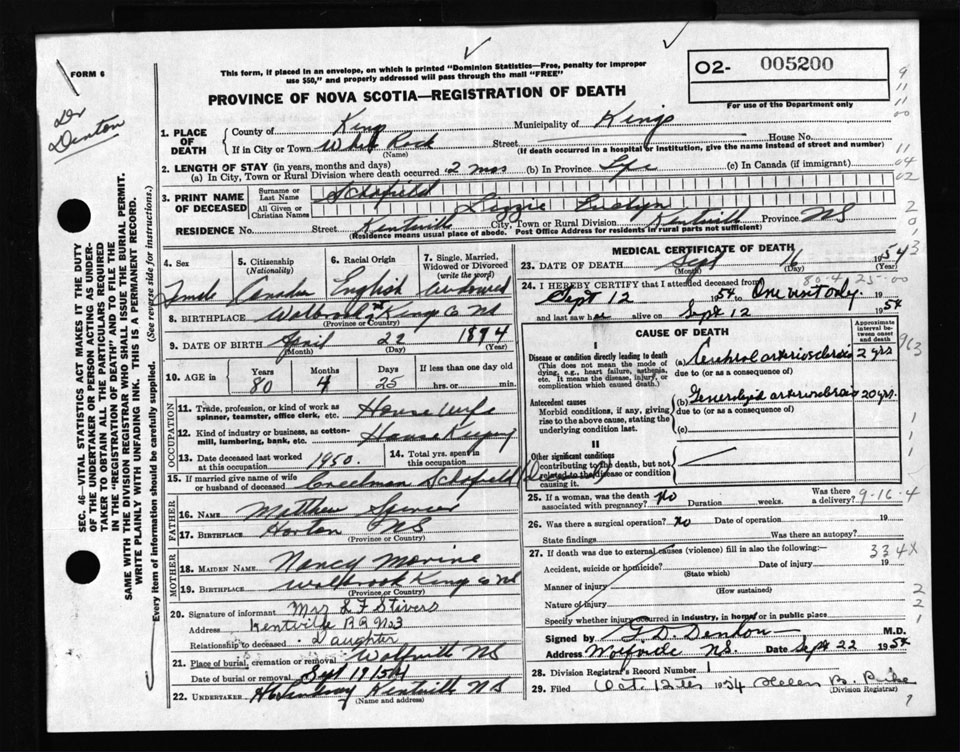 FORM 6
This form, if placed in an envelope, on which is printed "Dominion Statistics—Free, penalty for improper
use $50," and properly addressed will pass through the mail "FREE"
PROVINCE OF NOVA SCOTIA—REGISTRATION OF DEATH
O2- 005200
For use of the Department only
Dr
Denton
1. PLACE OF DEATH County of King Municipality of Kings
If in City or Town White Rock Street House No.
(Name) (If death occurred in a hospital or institution, give the name instead of street and number)
2. LENGTH OF STAY (in years, months and days)
(a) In City, Town or Rural Division where death occurred 2 mos (b) In Province Life (c) In Canada (if immigrant)
3. PRINT NAME OF DECEASED Surname or Last Name Schofield
All Given or Christian Names Lizzie
RESIDENCE No. Street Kentville City, Town or Rural Division Kentville Province NS
(Residence means usual place of abode. Post Office Address for residents in rural parts not sufficient)
4. Sex 5. Citizenship (Nationality) 6. Racial Origin 7. Single, Married, Widowed or Divorced (write the word)
Female Canadian English Widowed
8. BIRTHPLACE Walbrook King Co NS
(Province or Country)
9. DATE OF BIRTH April 22 1874
(Month) (Day) (Year)
10. AGE in Years Months Days If less than one day old
80 4 25 hrs. or min.
OCCUPATION
11. Trade, profession, or kind of work as spinner, teamster, office clerk, etc. House Wife
12. Kind of industry or business, as cotton-mill, lumbering, bank, etc. House Keeping
13. Date deceased last worked at this occupation 1950. 14. Total yrs. spent in this occupation
15. If married give name of wife or husband of deceased Creelman Schofield (Deceased)
FATHER
16. Name Matthew Spencer
17. Birthplace Horton NS
(Province or Country)
MOTHER
18. Maiden Name Nancy Morine
19. Birthplace Walbrook King Co NS
(Province or Country)
20. Signature of informant Mrs S F Stivers
Address Kentville RR No3
Relationship to deceased Daughter
21. Place of burial, cremation or removal Wolfville NS
Date of burial or removal Sept 19 1954
22. Undertaker Kentville NS
(Name and address)
MEDICAL CERTIFICATE OF DEATH
23. DATE OF DEATH Sept 16 1954
(Month) (Day) (Year)
24. I HEREBY CERTIFY that I attended deceased from
Sept 12 1954 to One visit only. 19
and last saw h er alive on Sept 12 1954
CAUSE OF DEATH
Approximate interval between onset and death
I
Disease or condition directly leading to death
(This does not mean the mode of dying, e.g., heart failure, asthenia, etc. It means the disease, injury, or complication which caused death.)
(a) Cerebral arteriosclerosis 2 yrs
due to (or as a consequence of)
Antecedent causes
Morbid conditions, if any, giving rise to the above cause, stating the underlying condition last.
(b) Generalized arteriosclerosis 20 yrs.
due to (or as a consequence of)
(c)
II
Other significant conditions
contributing to the death, but not related to the disease or condition causing it.
25. If a woman, was the death associated with pregnancy? No Duration weeks. Was there a delivery?
9-16-4
26. Was there a surgical operation? No Date of operation 19
State findings Was there an autopsy?
27. If death was due to external causes (violence) fill in also the following:—
334X
Accident, suicide or homicide? Date of injury 19
(State which)
Manner of injury
(How sustained)
Nature of injury
Specify whether injury occurred in industry, in home or in public place
Signed by G. D. Denton M.D.
Address Wolfville N.S. Date Sept 22 1954
28. Division Registrar's Record Number 1
29. Filed Oct. 12th 1954 Helen B.
(Division Registrar)
SEC. 46—VITAL STATISTICS ACT MAKES IT THE DUTY
OF THE UNDERTAKER OR PERSON ACTING AS UNDER-
TAKER TO OBTAIN ALL THE PARTICULARS REQUIRED
IN THE "REGISTRATION OF DEATH" AND TO FILE THE
SAME WITH THE DIVISION REGISTRAR WHO SHALL ISSUE THE BURIAL PERMIT.
WRITE PLAINLY WITH UNFADING INK. THIS IS A PERMANENT RECORD.
Every item of information should be carefully supplied. (See reverse side for instructions.)